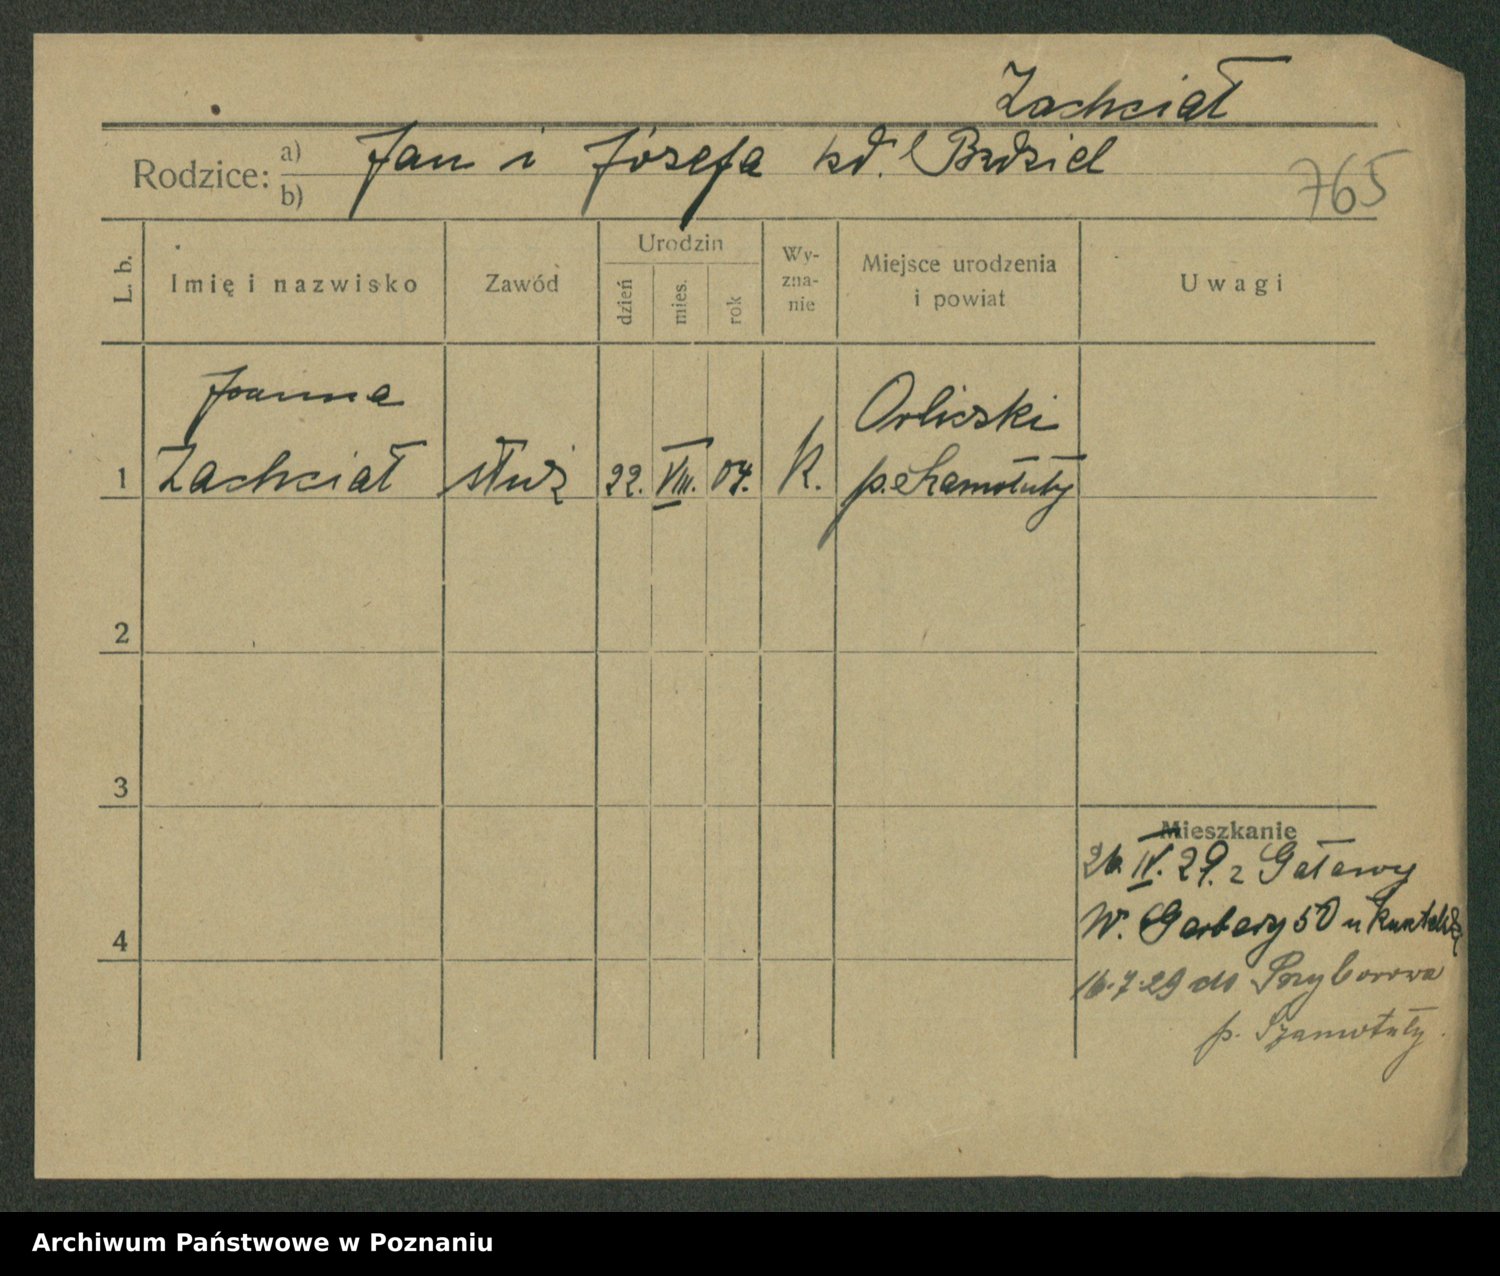 Zachciał
Rodzice: a) b) Jan i Józefa zd.
765
L. b. Imię i nazwisko Zawód Urodzin dzień mies. rok Wy-zna-nie Miejsce urodzenia i powiat Uwagi
Joanna
1 Zachciał służ 22. VIII. 04. K.
p. Szamotuły
2
3
Mieszkanie
26. IV. 29. z
4
W. Garbary 50 u
16.7.29 do Przyborowa
p. Szamotuły.
Archiwum Państwowe w Poznaniu